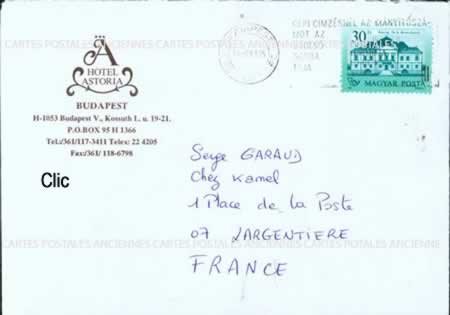 GÉPI CÍMZÉSNÉL AZ IRÁNYÍTÓSZÁ-
MOT AZ
UTOLSÓ
SORBA
ÍRJA
30 Ft
MAGYAR POSTA
CARTES POSTALES ANCIENNES CARTES POSTALES ANCIENNES
A
HOTEL
ASTORIA
BUDAPEST
H-1053 Budapest V., Kossuth L. u. 19-21.
P.O.BOX 95 H 1366
Tel.:/361/117-3411 Telex: 22 4205
Fax:/361/ 118-6798
Clic
Serge GARAUD
Chez Kamel
1 Place de la Poste
07 LARGENTIERE
FRANCE
CARTES POSTALES ANCIENNES CARTES POSTALES ANCIENNES CARTES POSTALES ANCIENNE